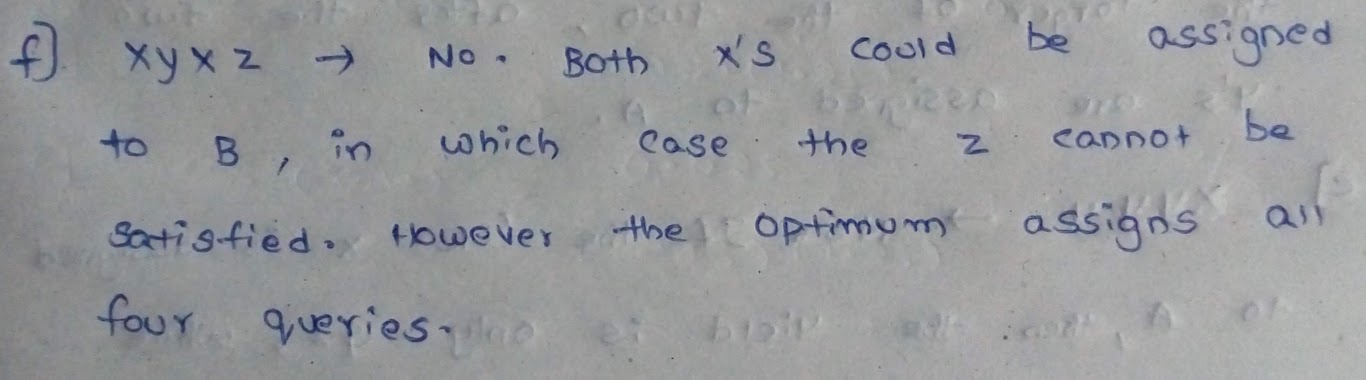 f) xyxz → No. Both x's could be assigned
to B, in which case the z cannot be
satisfied. However the optimum assigns all
four queries.